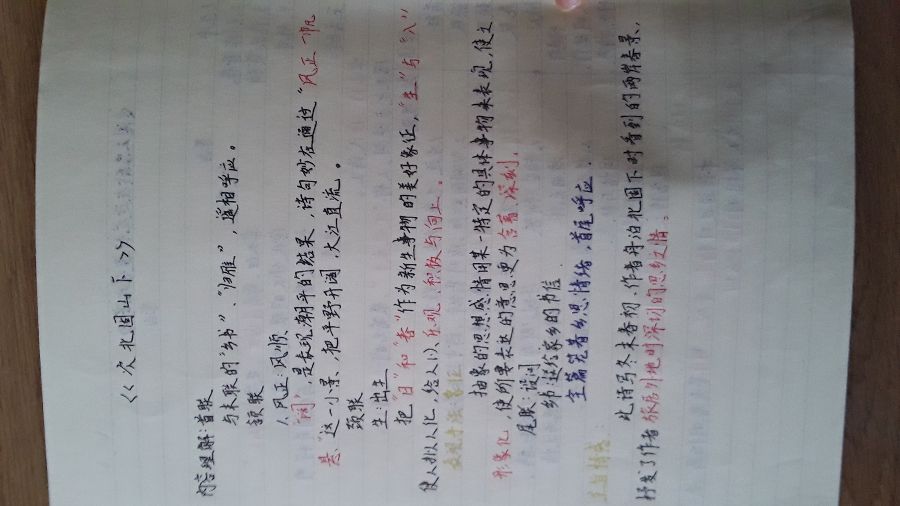 《次北固山下》
内容理解:首联
与末联的"乡书"、"归雁",遥相呼应。
颔联
1.风正:风顺
"阔",是表现潮平的结果,诗句妙在通过"风正一帆
悬"这一小景,把平野开阔,大江直流。
颈联
生:出生
把"日"和"春"作为新生事物的美好象征,"生"与"入"
使人拟人化,给人以乐观、积极与向上。
表现手法:象征
抽象的思想感情用某一特定的具体事物来表现,使之
形象化,使所要表达的意思更为含蓄、深刻。
尾联:设问
乡书:送给家乡的书信
全篇笼着乡思情绪,首尾呼应.
主旨情感:
此诗写冬末春初,作者舟泊北固下时看到的两岸春景,
抒发了作者旅居外地时深切的思乡之情。